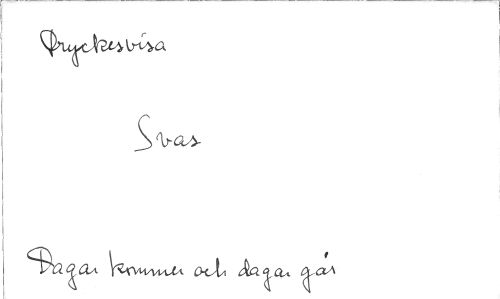 Dryckesvisa
Svas
Dagar kommer och dagar går